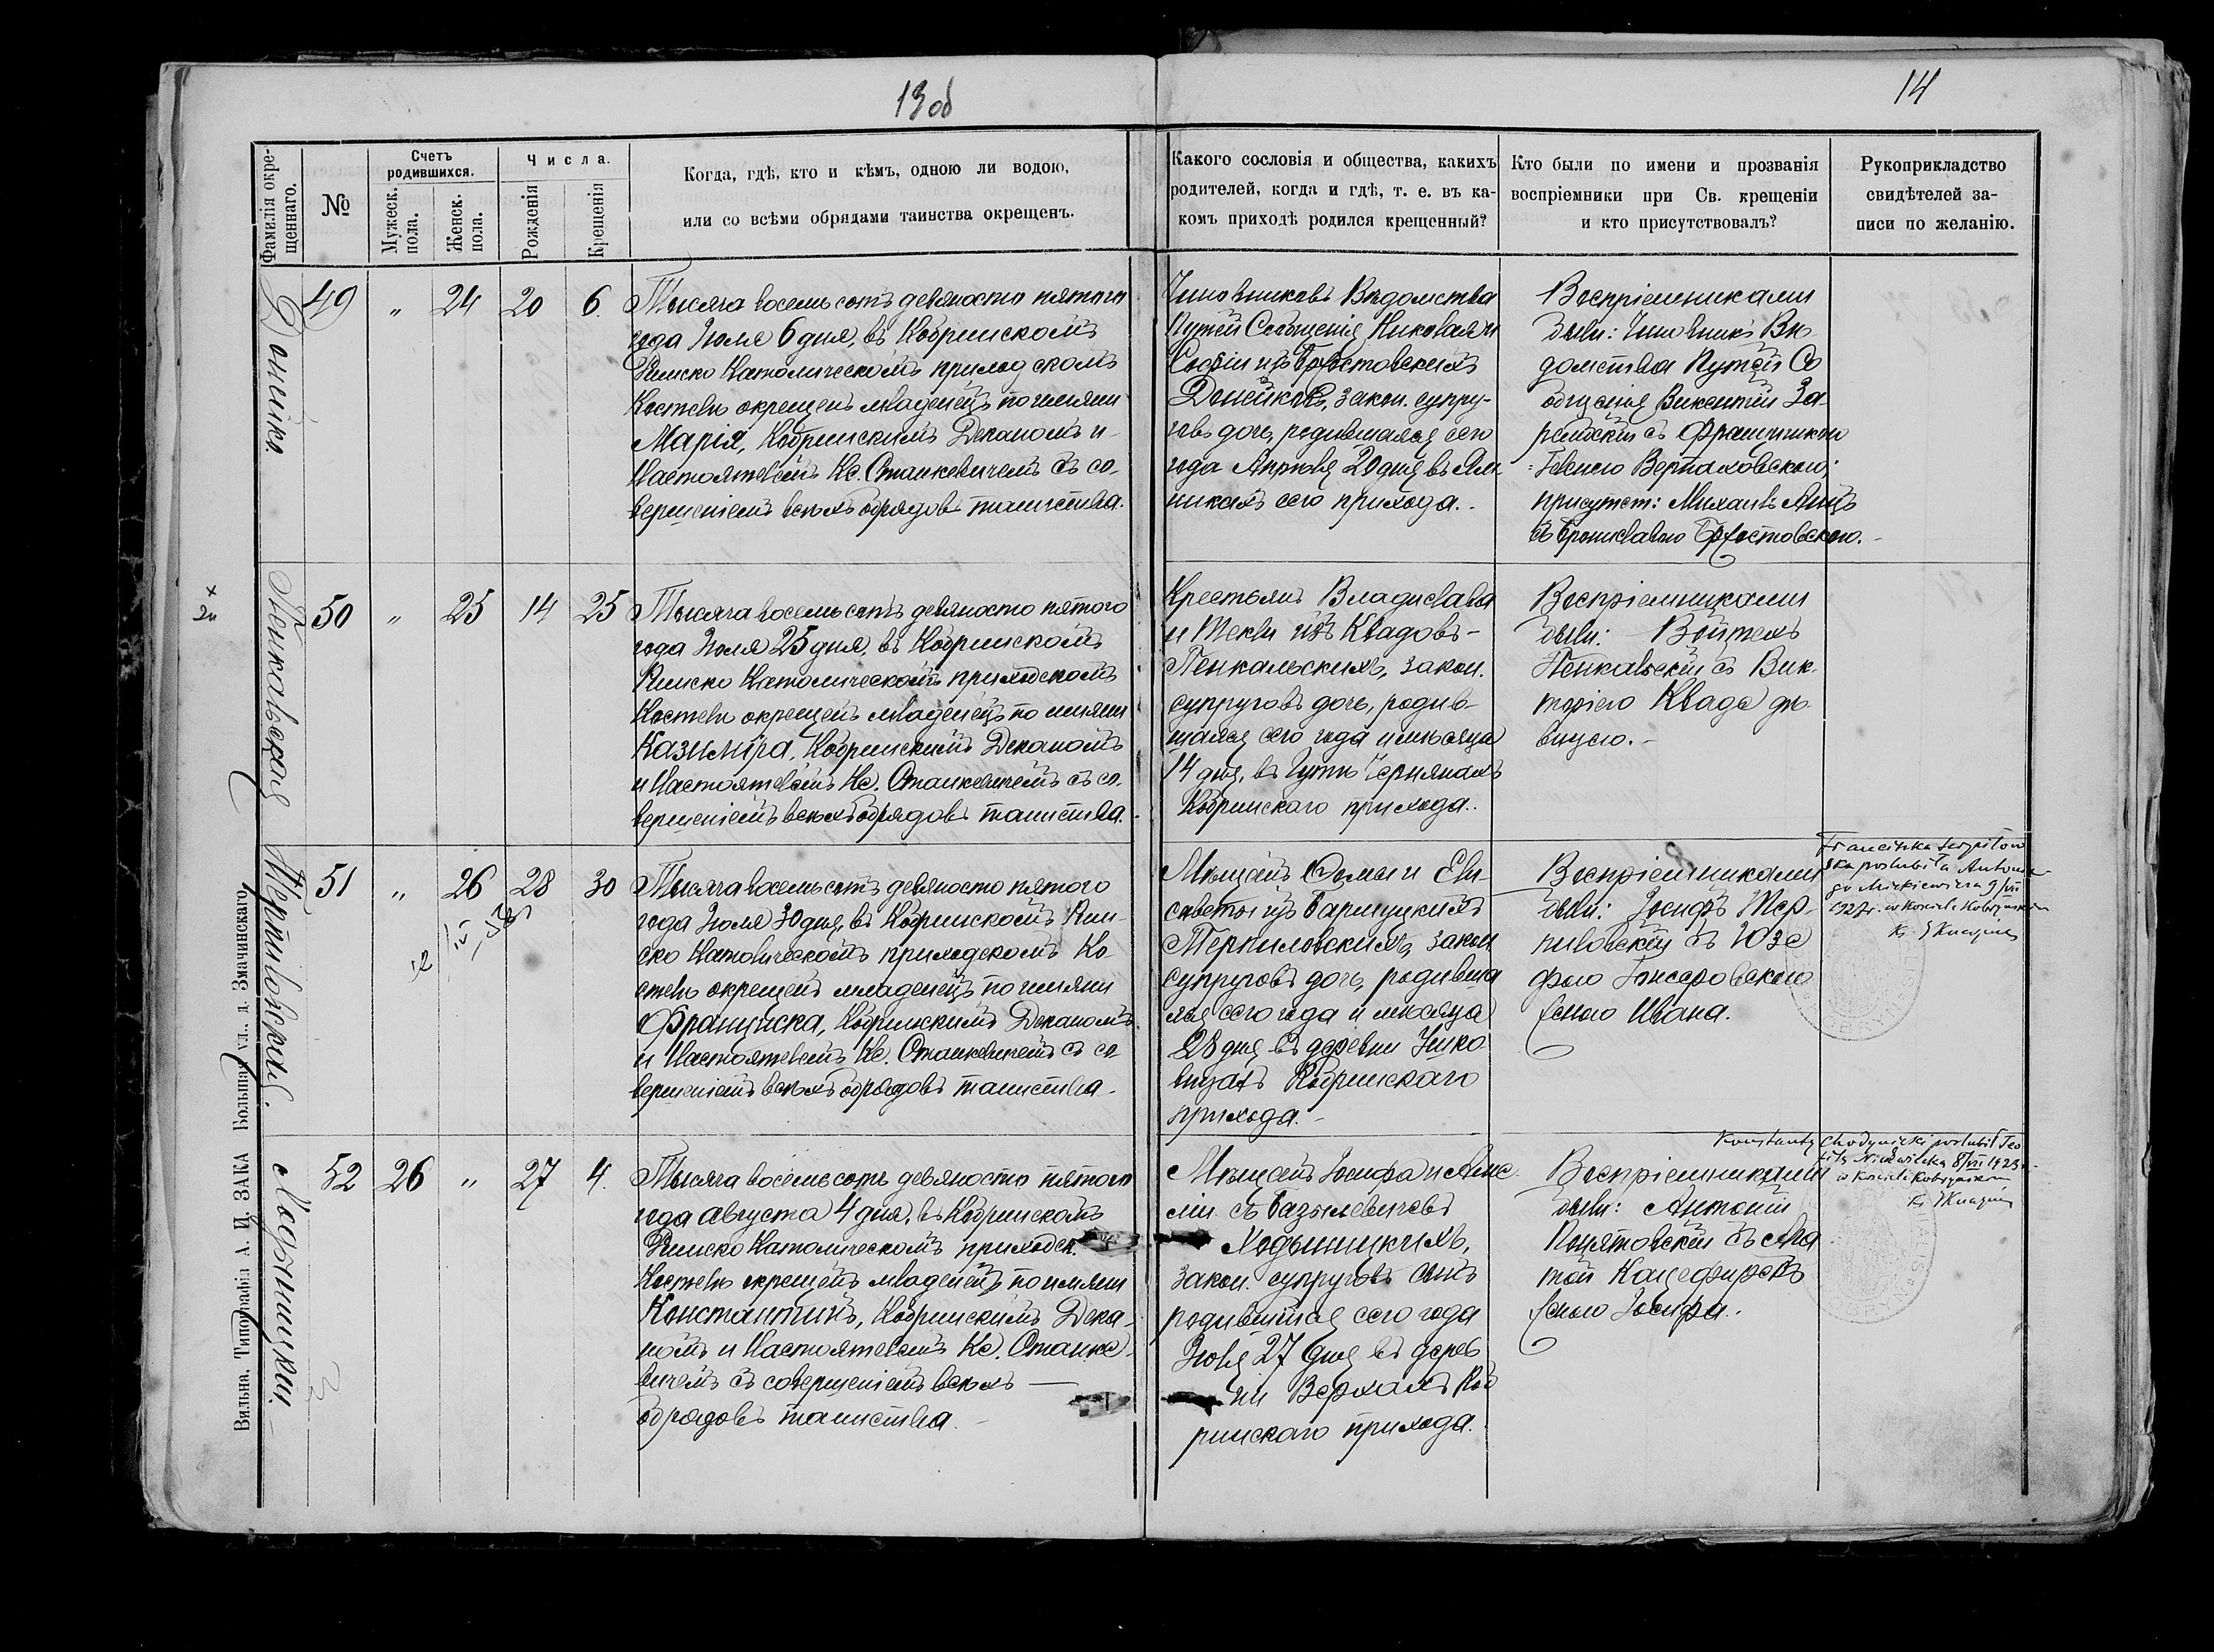 13 об
14
Фамилія окре-
щеннаго.
№
Счетъ
родившихся.
Мужеск.
пола.
Женск.
пола.
Числа.
Рожденія
Крещенія
Когда, гдѣ, кто и кѣмъ, одною ли водою,
или со всѣми обрядами таинства окрещенъ.
Какого сословія и общества, какихъ
родителей, когда и гдѣ, т. е. въ ка-
комъ приходѣ родился крещенный?
Кто были по имени и прозванія
воспріемники при Св. крещеніи
и кто присутствовалъ?
Рукоприкладство
свидѣтелей за-
писи по желанію.
Донейко.
49 „ 24 20 6.
Тысяча восемь сотъ девяносто пятого
года Іюля 6 дня, въ Кобринскомъ
Римско Католическомъ приход скомъ
Костелѣ окрещенъ младенецъ по имени
Марія, Кобринскимъ Деканомъ и
Настоятелемъ Кс. Станкевичемъ съ со-
вершеніемъ всѣхъ обрядовъ таинства.
Чиновниковъ Вѣдомства
Путей Сообщенія Николая и
Софіи изъ Бржостовскихъ
Донейковъ, закон. супру-
говъ дочь, родившаяся сего
года Апрѣля 20 дня въ
никахъ сего прихода.
Воспріемниками
были: Чиновникъ Вѣ-
домства Путей Со
общенія Викентій За-
рембскій съ Францишкою
Вертаховскою;
присутст: Михаилъ
съ Брониславою Бржостовскою.
Пенкальская
50 „ 25 14 25
Тысяча восемь сотъ девяносто пятого
года Іюля 25 дня, въ Кобринскомъ
Римско Католическомъ приходскомъ
Костелѣ окрещенъ младенецъ по имени
Казиміра, Кобринскимъ Деканомъ
и Настоятелемъ Кс. Станкевичемъ съ со-
вершеніемъ всѣхъ обрядовъ таинства.
Крестьянъ Владислава
и Текли изъ Квадовъ-
Пенкальскихъ, закон.
супруговъ дочь, родив-
шаяся сего года и мѣсяца
14 дня, въ Гутѣ Чернянахъ
Кобринскаго прихода.
Воспріемниками
были: Войтехъ
Пенкальскій съ Вик-
торіею Квада дѣ-
вицею.
Терпиловская.
51 „ 26 28 30
Тысяча восемь сотъ девяносто пятого
года Іюля 30 дня, въ Кобринскомъ Рим-
ско Католическомъ приходскомъ Ко-
стелѣ окрещенъ младенецъ по имени
Франциска, Кобринскимъ Деканомъ
и Настоятелемъ Кс. Станкевичемъ съ со
вершеніемъ всѣхъ обрядовъ таинства
Мѣщанъ Фомы и Ели-
саветы изъ Барицкихъ
Терпиловскихъ, закон
супруговъ дочь, родивша
яся сего года и мѣсяца
28 дня въ деревни
Кобринскаго
прихода.
Воспріемниками
были: Іосифъ Тер-
пиловскій съ Юзе
фою
женою Ивана.
Franciszka Terpiłow
ska poślubiła Antonie-
go Mickiewicza 9/VII
1927r. w kościele Kobryńskim
Ks.
Ходыницкій.
52 26 „ 27 4.
Тысяча восемь сотъ девяносто пятого
года августа 4 дня, въ Кобринскомъ
Римско Католическомъ приходск.
Костелѣ окрещенъ младенецъ по имени
Константинъ, Кобринскимъ Дека-
номъ и Настоятелемъ Кс. Станке
вичемъ съ совершеніемъ всѣхъ
обрядовъ таинства.
Мѣщанъ Іосифа и
съ Базылевичевъ
Ходыницкихъ,
закон. супруговъ сынъ
родившійся сего года
Іюля 27 дня въ дерев
ни Верхахъ Коб
ринскаго прихода.
Воспріемниками
были: Антоній
Понятовскій съ Ага
той
женою Іосифа.
Konstanty Chodynicki poślubił Teo
8/VII 1923r.
w kościele Kobryńskim
Ks.
Вильна. Типографія А. И. ЗАКА Большая ул., д. Змачинскаго.